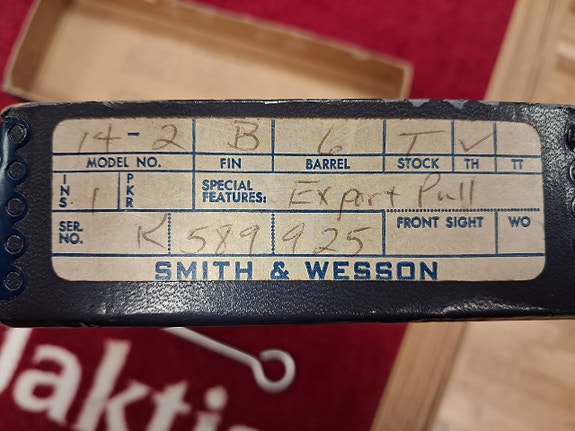 14-2 B 6 T ✓
MODEL NO. FIN BARREL STOCK TH TT
INS. 1 PKR SPECIAL FEATURES: Export Pull
SER. NO. K 589 925 FRONT SIGHT WO
SMITH & WESSON
Jakti